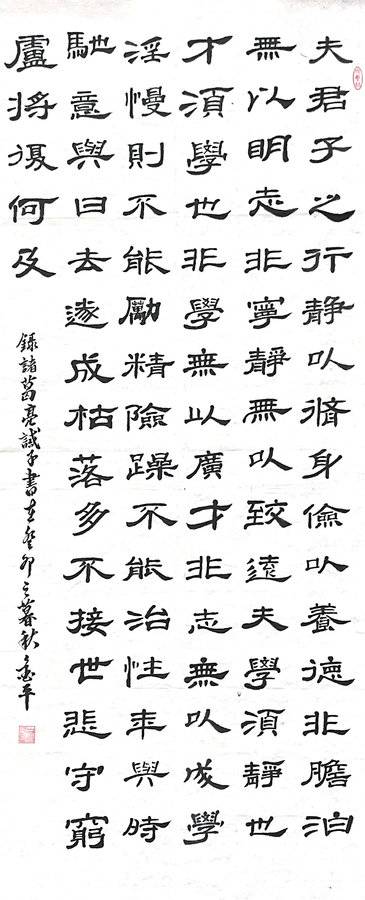 夫君子之行靜以脩身儉以養德非膽泊
無以明志非寧靜無以致遠夫學須靜也
才須學也非學無以廣才非志無以成學
淫慢則不能勵精險躁不能治性年與時
馳意與日去遂成枯落多不接世悲守窮
盧將復何及
錄諸葛亮誡子書在癸卯之暮秋平